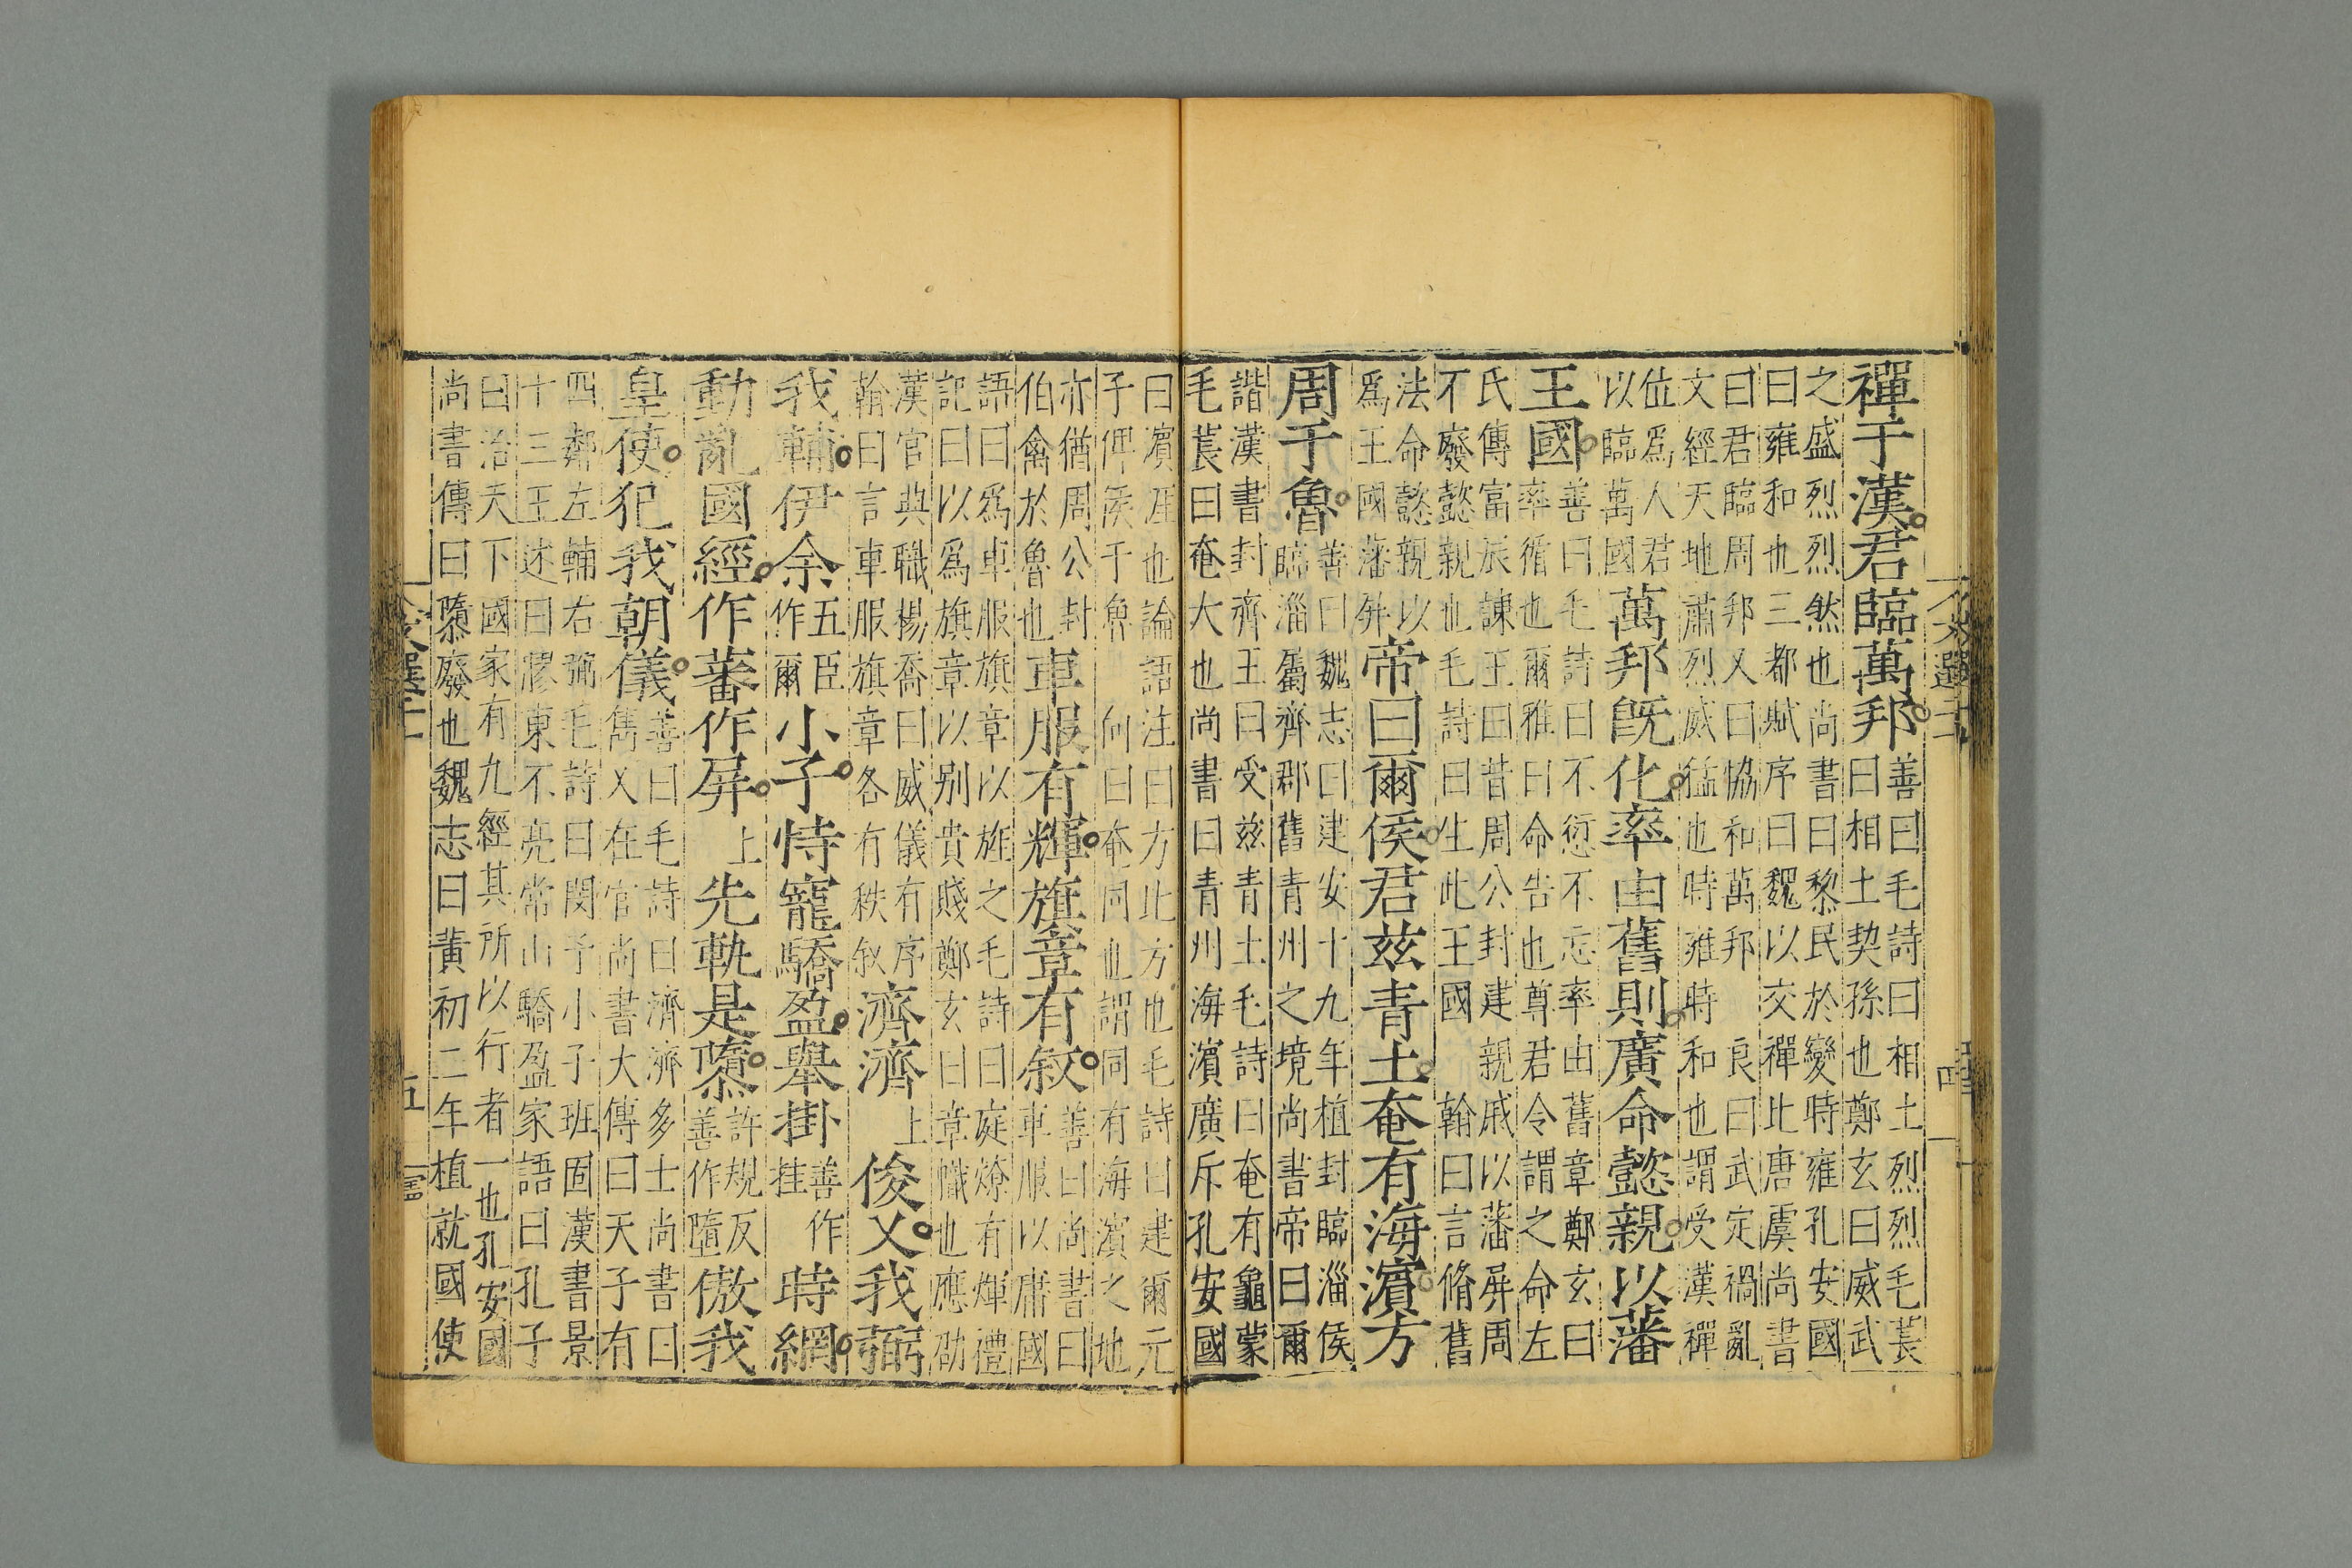 禪于漢君臨萬邦
善曰毛詩曰相土烈烈毛萇
曰相土契孫也鄭玄曰威武
之盛烈烈然也尚書曰黎民於變時雍孔安國
曰雍和也三都賦序曰魏以交禪比唐虞尚書
曰君臨周邦又曰協和萬邦 良曰武定禍亂
文經天地肅烈威猛也時雍時和也謂受漢禪
位爲人君
以臨萬國
萬邦旣化率由舊則廣命懿親以藩
王國
善曰毛詩曰不愆不忘率由舊章鄭玄曰
率循也爾雅曰命告也尊君令謂之命左
氏傳富辰諫王曰昔周公封建親戚以藩屏周
不廢懿親也毛詩曰生此王國 翰曰言脩舊
法命懿親以
爲王國藩屏
帝曰爾侯君茲青土奄有海濱方
周于魯
善曰魏志曰建安十九年植封臨淄侯
臨淄屬齊郡舊青州之境尚書帝曰爾
諧漢書封齊王曰受茲青土毛詩曰奄有龜蒙
毛萇曰奄大也尚書曰青州海濱廣斥孔安國
曰濱涯也論語注曰方比方也毛詩曰建爾元
子俾侯于魯 向曰奄同也謂同有海濱之地
亦猶周公封
伯禽於魯也
車服有輝旗章有叙
善曰尚書曰
車服以庸國
語曰爲車服旗章以旌之毛詩曰庭燎有煇禮
記曰以爲旗章以别貴賤鄭玄曰章幟也應劭
漢官典職楊喬曰威儀有序
翰曰言車服旗章各有秩叙
濟濟上俊乂我弼
我輔伊余
五臣
作爾
小子恃寵驕盈舉掛
善作
挂
時網
動亂國經作蕃作屏上先軌是隳
許規反
善作墮
傲我
皇使犯我朝儀
善曰毛詩曰濟濟多士尚書曰
雋乂在官尚書大傳曰天子有
四鄰左輔右弼毛詩曰閔予小子班固漢書景
十三王述曰膠東不亮常山驕盈家語曰孔子
曰治天下國家有九經其所以行者一也孔安國
尚書傳曰隳廢也魏志曰黃初二年植就國使